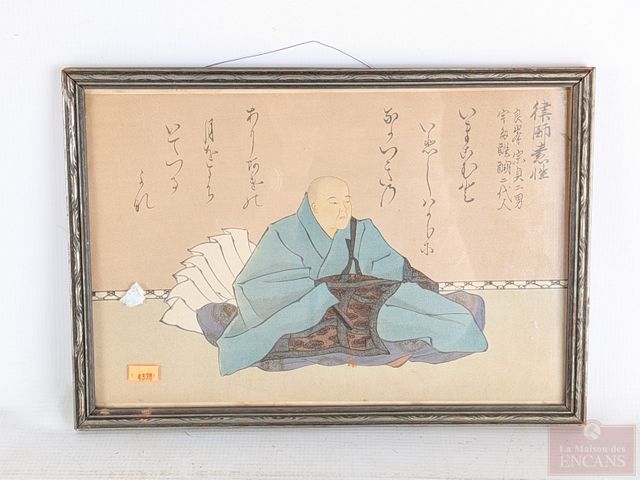 律師素性
良峯宗貞二男
宇多醍醐二代人
いまこむと
いひしはかりに
なかつきの
ありあけの
月をまち
いてつる
かな
La Maison des
ENCANS